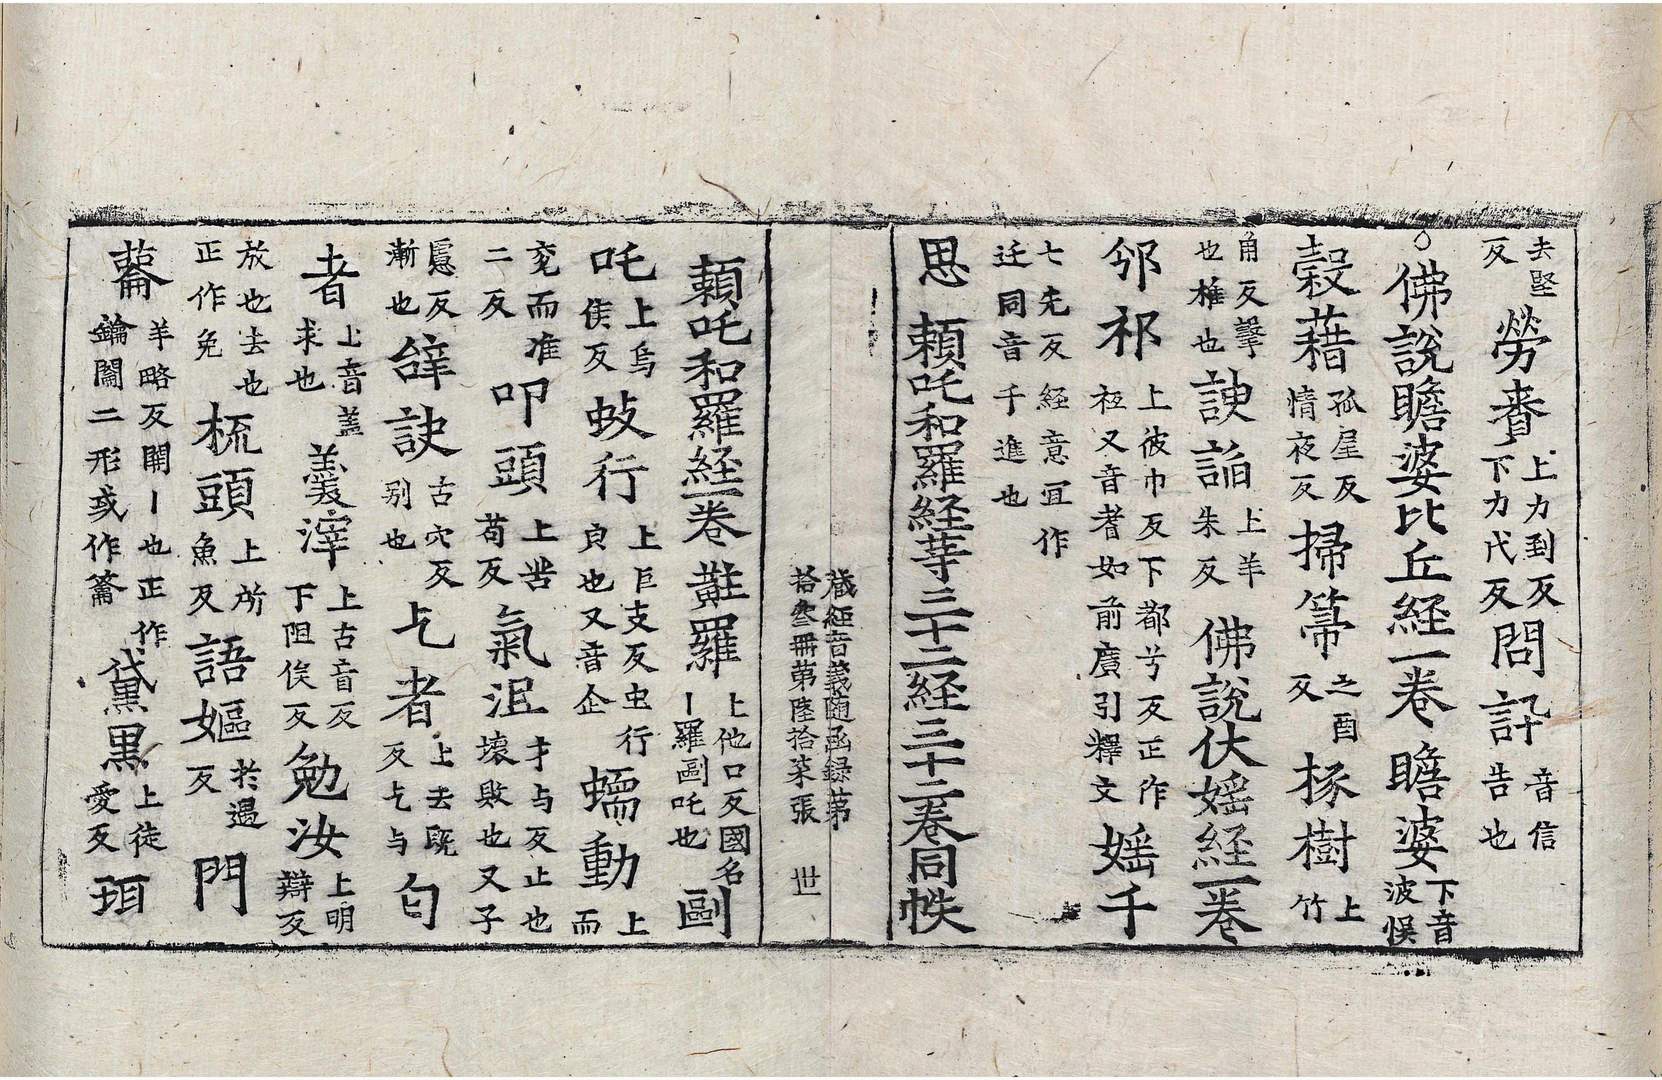 去堅反 勞賚 上力到反下力代反 問訊 音信告也
佛說瞻婆比丘経一卷 瞻婆 下音波悞
穀藉 孤屋反情夜反 掃箒 之酉反 椓樹 上竹
角反擊也椎也 諛諂 上羊朱反 佛說伏婬経一卷
邠祁 上彼巾反下都兮反正作 又音耆如前廣引釋文 婬千
七先反経意冝作迁同音千進也
思 頼吒和羅経䓁三十二経三十二卷同帙
蔵経音義随函録第
拾叁冊第陸拾柒張 世
頼吒和羅経一卷 黈羅 上他口反國名丨羅𠚏吒也 𠚏
吒 上烏侯反 蚑行 上巨支反虫行皃也又音企 蠕動 上而
兖而准二反 叩頭 上苦苟反 氣沮 才与反止也壞敗也又子
慮反漸也 辝訣 古穴反别也 乞者 上去既反乞与 匃
者 上音盖求也 羹滓 上古音反下阻俟反 勉汝 上明辯反
放也去也正作免 梳頭 上所魚反 語嫗 於遇反 門
蘥 羊略反開丨也正作鑰闟二形或作籥 黛黒 上徒愛反 珥